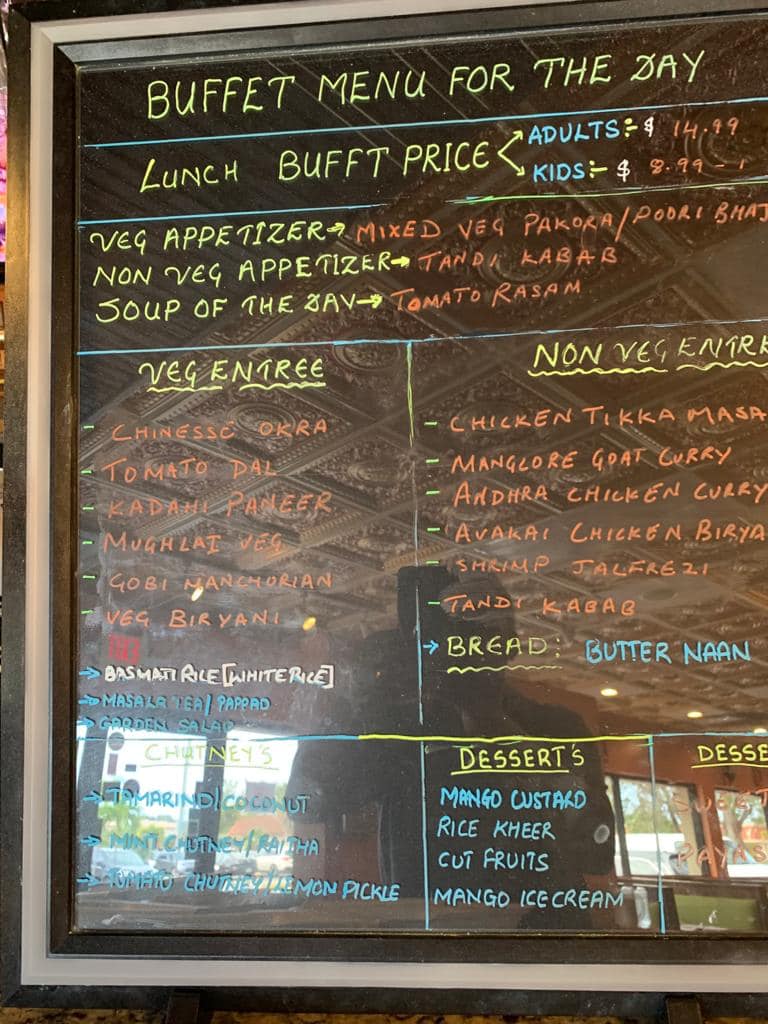 BUFFET MENU FOR THE DAY
LUNCH BUFFT PRICE
ADULTS:- $ 14.99
KIDS:- $ 8.99 - 1
VEG APPETIZER→ MIXED VEG PAKORA/POORI BHAJ
NON VEG APPETIZER→ TANDI KABAB
SOUP OF THE DAY→ TOMATO RASAM
VEG ENTREE
- CHINESSE OKRA
- TOMATO DAL
- KADAHI PANEER
- MUGHLAI VEG
- GOBI MANCHURIAN
- VEG BIRYANI
→ BASMATI RICE [WHITE RICE]
→ MASALA TEA/ PAPPAD
→ GARDEN SALAD
NON VEG ENTRE
- CHICKEN TIKKA MASA
- MANGLORE GOAT CURRY
- ANDHRA CHICKEN CURRY
- AVAKAI CHICKEN BIRYA
- SHRIMP JALFREZI
- TANDI KABAB
→ BREAD: BUTTER NAAN
CHUTNEY'S
→ TAMARIND/COCONUT
→ MINT CHUTNEY/RAITHA
→ TOMATO CHUTNEY/LEMON PICKLE
DESSERT'S
MANGO CUSTARD
RICE KHEER
CUT FRUITS
MANGO ICE CREAM
DESSE
SWEET
PAYAS